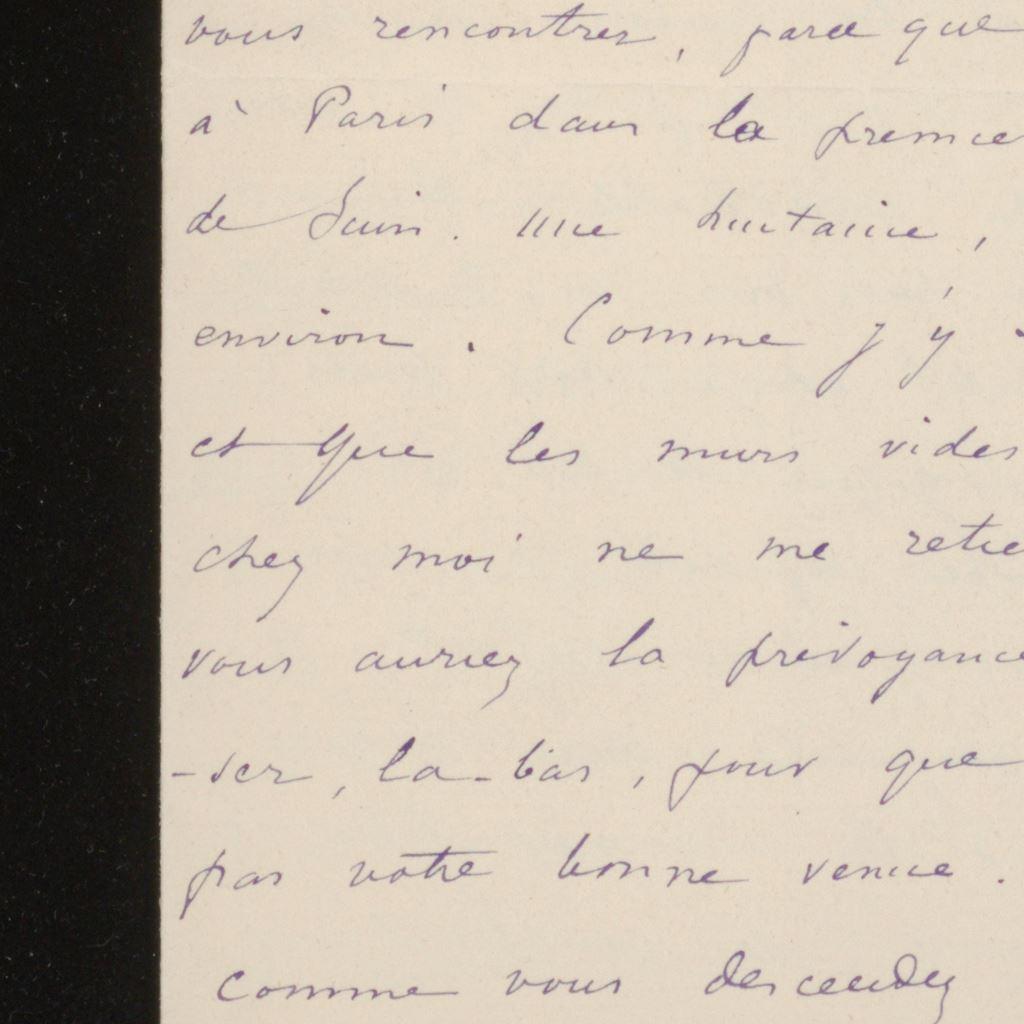 vous rencontrer, parce que
à Paris dans la premie
de Juin. une huitaine,
environ. Comme j'y
et que les murs vides
chez moi ne me retie
vous auriez la prévoyance
-ser, là-bas, pour que
pas votre bonne venue.
comme vous descendez